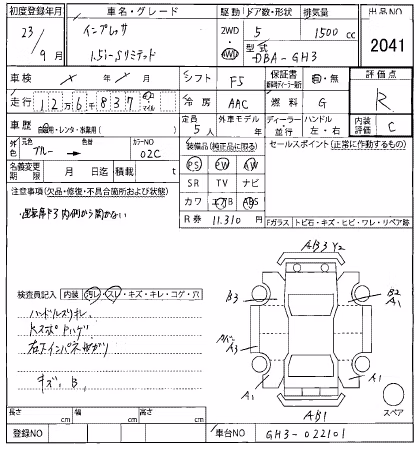 初度登録年月 車名・グレード 駆動 ドア数・形状 排気量 出品NO
23年 インプレッサ 2WD 5 1500cc
9月 1.5i-Sリミテッド 4WD 型式 DBA-GH3 2041
車検 年 月 シフト F5 保証書 有・無 評価点
走行 12万6千837 マイル 冷房 AAC 燃料 G R
車歴 自家用・レンタ・事業用( ) 定員 5人 外車モデル 年 ディーラー・並行 ハンドル 左・右 内装評価 C
外色 元色 ブルー → 色替 カラーNO 02C 装備品(純正品に限る) セールスポイント(正常に作動するもの)
名義変更期限 月 日迄 積載 t PS PW AW
注意事項(欠品・修復・不具合箇所および状態) SR TV ナビ
運転席ドア内側から開かない カワ エアB ABS
R券 11,310円 Fガラス トビ石・キズ・ヒビ・ワレ・リペア跡
AB3 Y2
検査員記入 内装 汚レ・スレ・キズ・キレ・コゲ・穴 B3 B2 A1
ハンドルスリキレ、
A3
キズ、B、
A1 A1
スペア
AB1
長さ cm 幅 cm 高さ cm
登録NO 車台NO GH3-022101